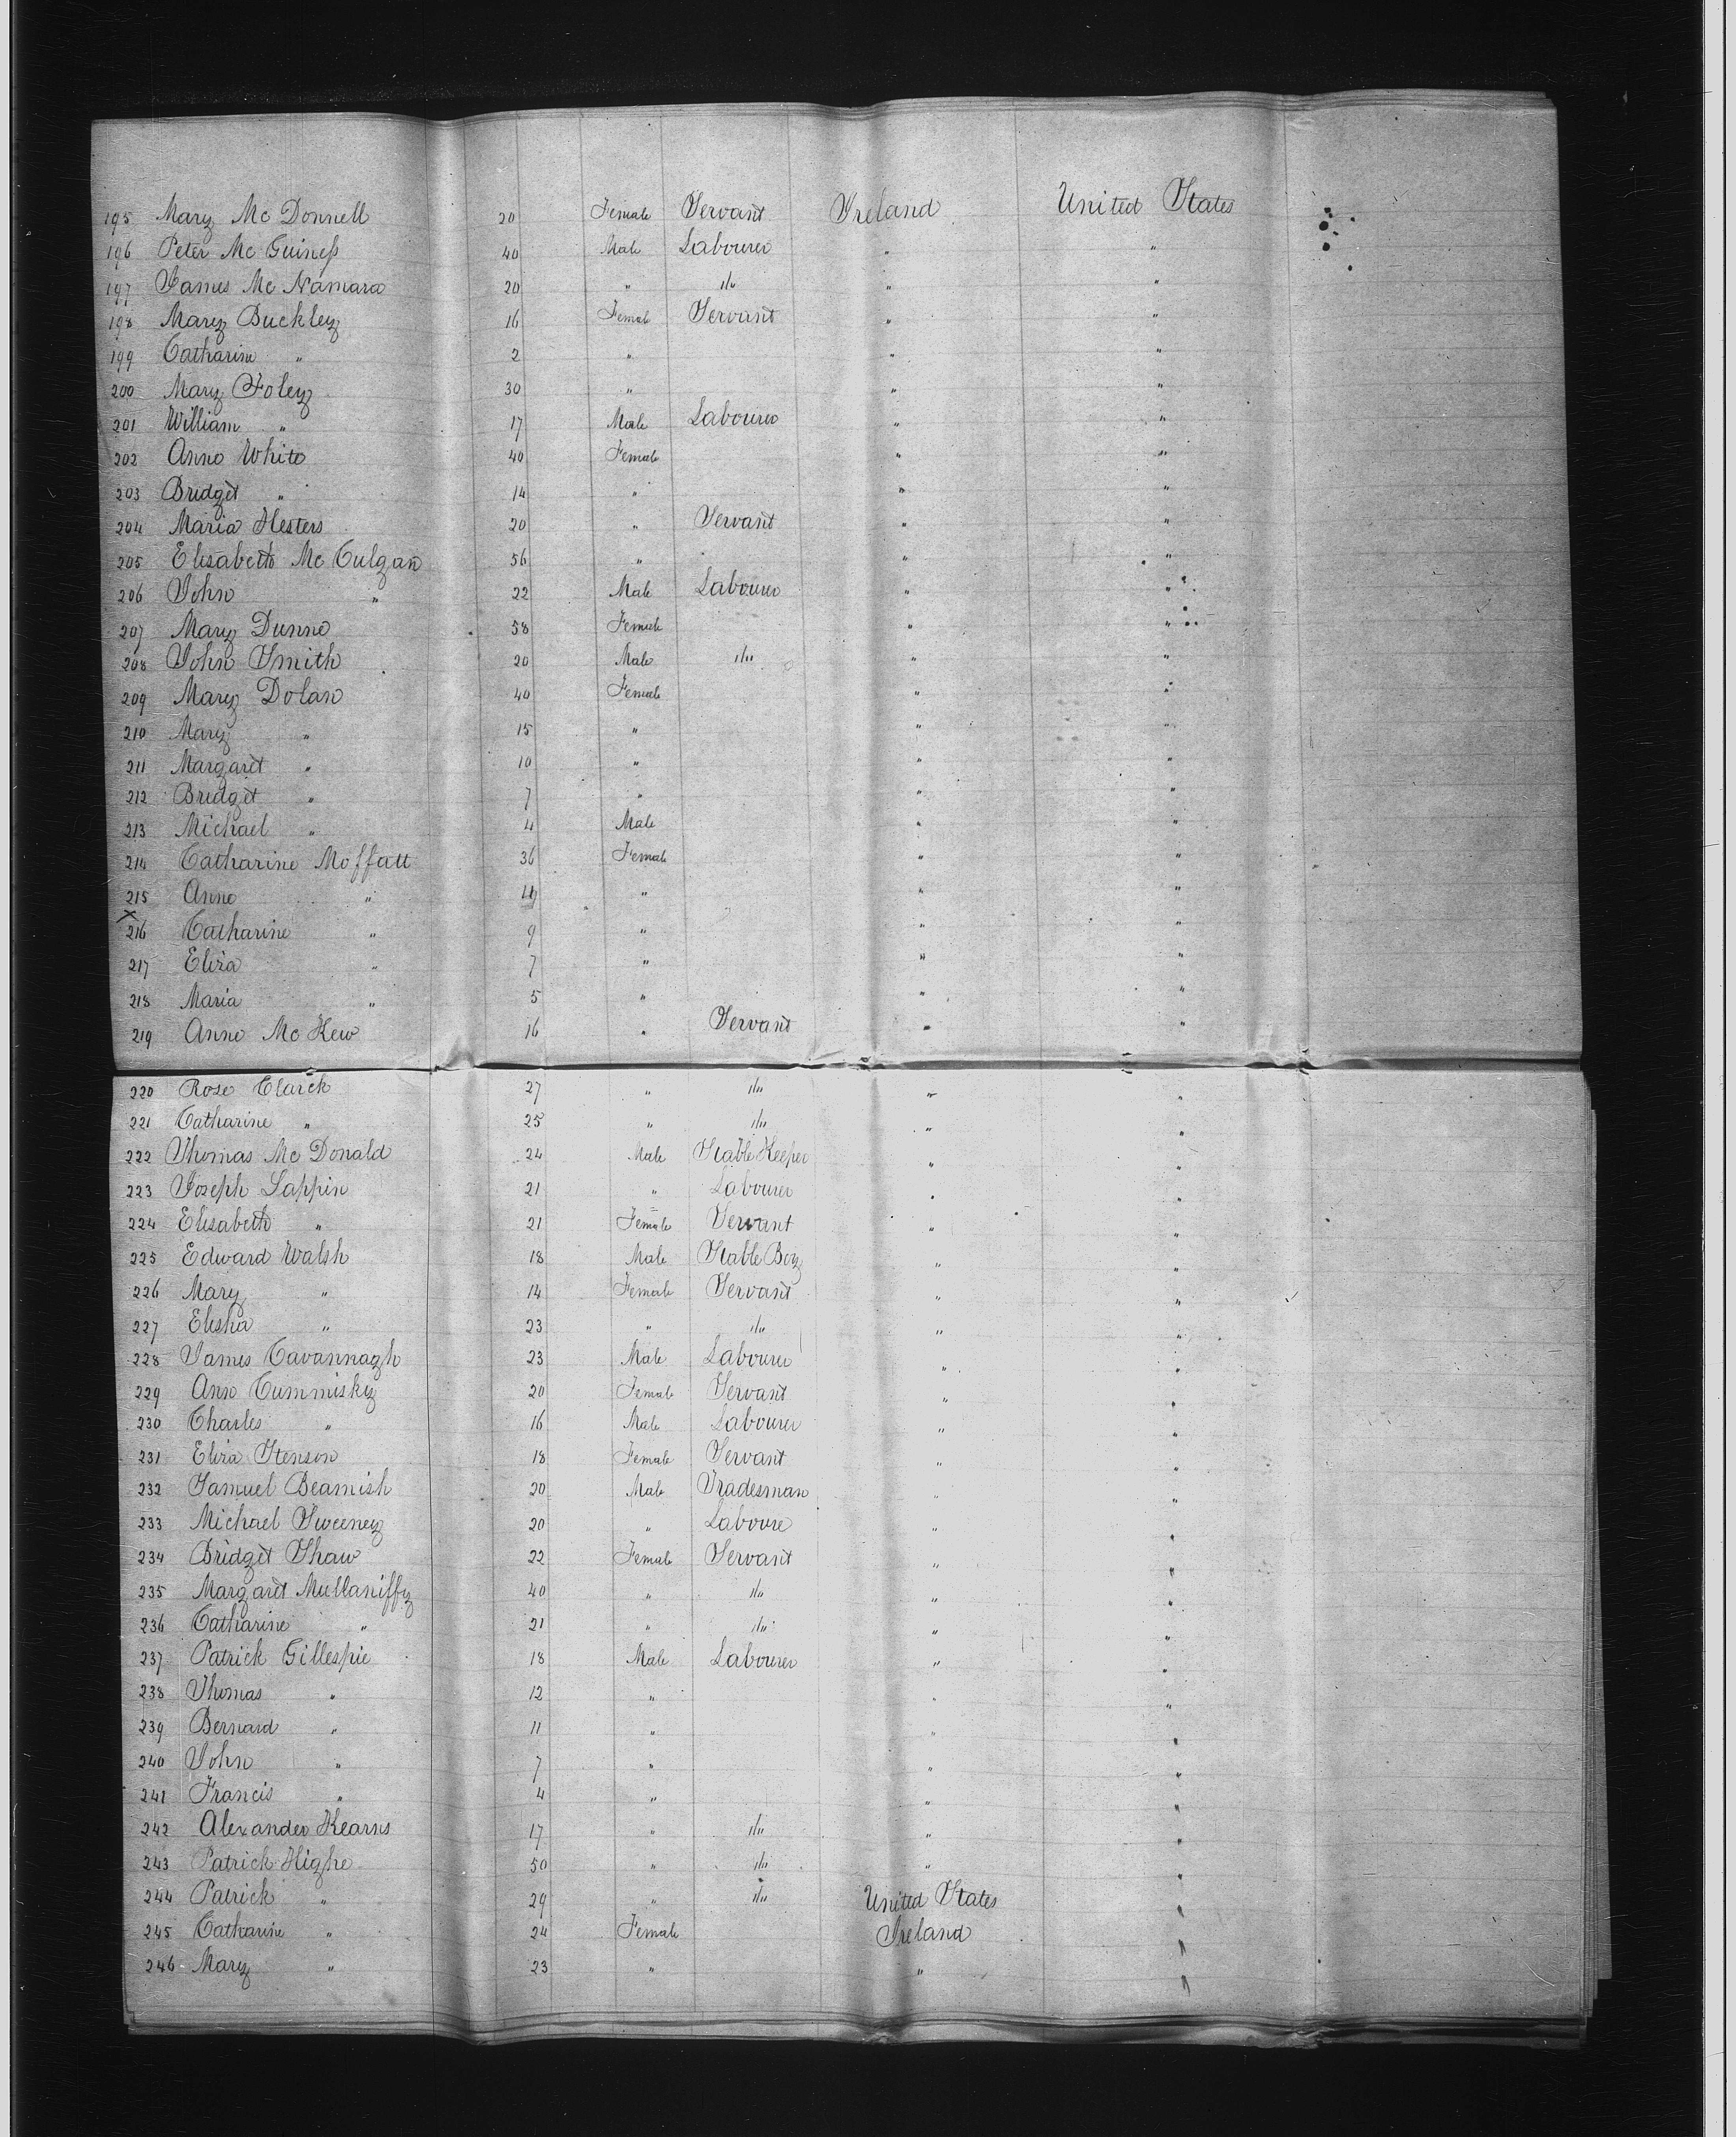 195 Mary Mc Donnell 20 Female Servant Ireland United States
196 Peter Mc Guiness 40 Male Labourer " "
197 James Mc Namara 20 " "/" " "
198 Mary Buckley 16 Female Servant " "
199 Catharine " 2 " " "
200 Mary Foley 30 " " "
201 William " 17 Male Labourer " "
202 Anne White 40 Female " "
203 Bridget " 14 " " "
204 Maria Hesters 20 " Servant " "
205 Elisabeth Mc Culgan 56 " " "
206 John " 22 Male Labourer " "
207 Mary Dunne 58 Female " "
208 John Smith 20 Male "/" " "
209 Mary Dolan 40 Female " "
210 Mary " 15 " " "
211 Margaret " 10 " " "
212 Bridget " 7 " " "
213 Michael " 4 Male " "
214 Catharine Moffatt 36 Female " "
215 Anne " " " "
x
216 Catharine " 9 " " "
217 Eliza " 7 " " "
218 Maria " 5 " " "
219 Anne Mc Kew 16 " Servant " "
220 Rose Clarck 27 " "/" " "
221 Catharine " 25 " "/" " "
222 Thomas Mc Donald 24 Male Stable Keeper " "
223 Joseph Lappin 21 " Labourer " "
224 Elisabeth " 21 Female Servant " "
225 Edward Walsh 18 Male Stable Boy " "
226 Mary " 14 Female Servant " "
227 Elisha " 23 " "/" " "
228 James Cavannagh 23 Male Labourer " "
229 Ann Cummisky 20 Female Servant " "
230 Charles " 16 Male Labourer " "
231 Eliza Stenson 18 Female Servant " "
232 Samuel Beamish 20 Male Tradesman " "
233 Michael Sweeney 20 " Laboure " "
234 Bridget Shaw 22 Female Servant " "
235 Margaret Mullaniffy 40 " "/" " "
236 Catharine " 21 " "/" " "
237 Patrick Gillespie 18 Male Labourer " "
238 Thomas " 12 " " "
239 Bernard " 11 " " "
240 John " 7 " " "
241 Francis " 4 " " "
242 Alexander Kearns 17 " "/" " "
243 Patrick Highe 50 " "/" " "
244 Patrick " 29 " "/" United States "
245 Catharine " 24 Female Ireland "
246 Mary " 23 " " "